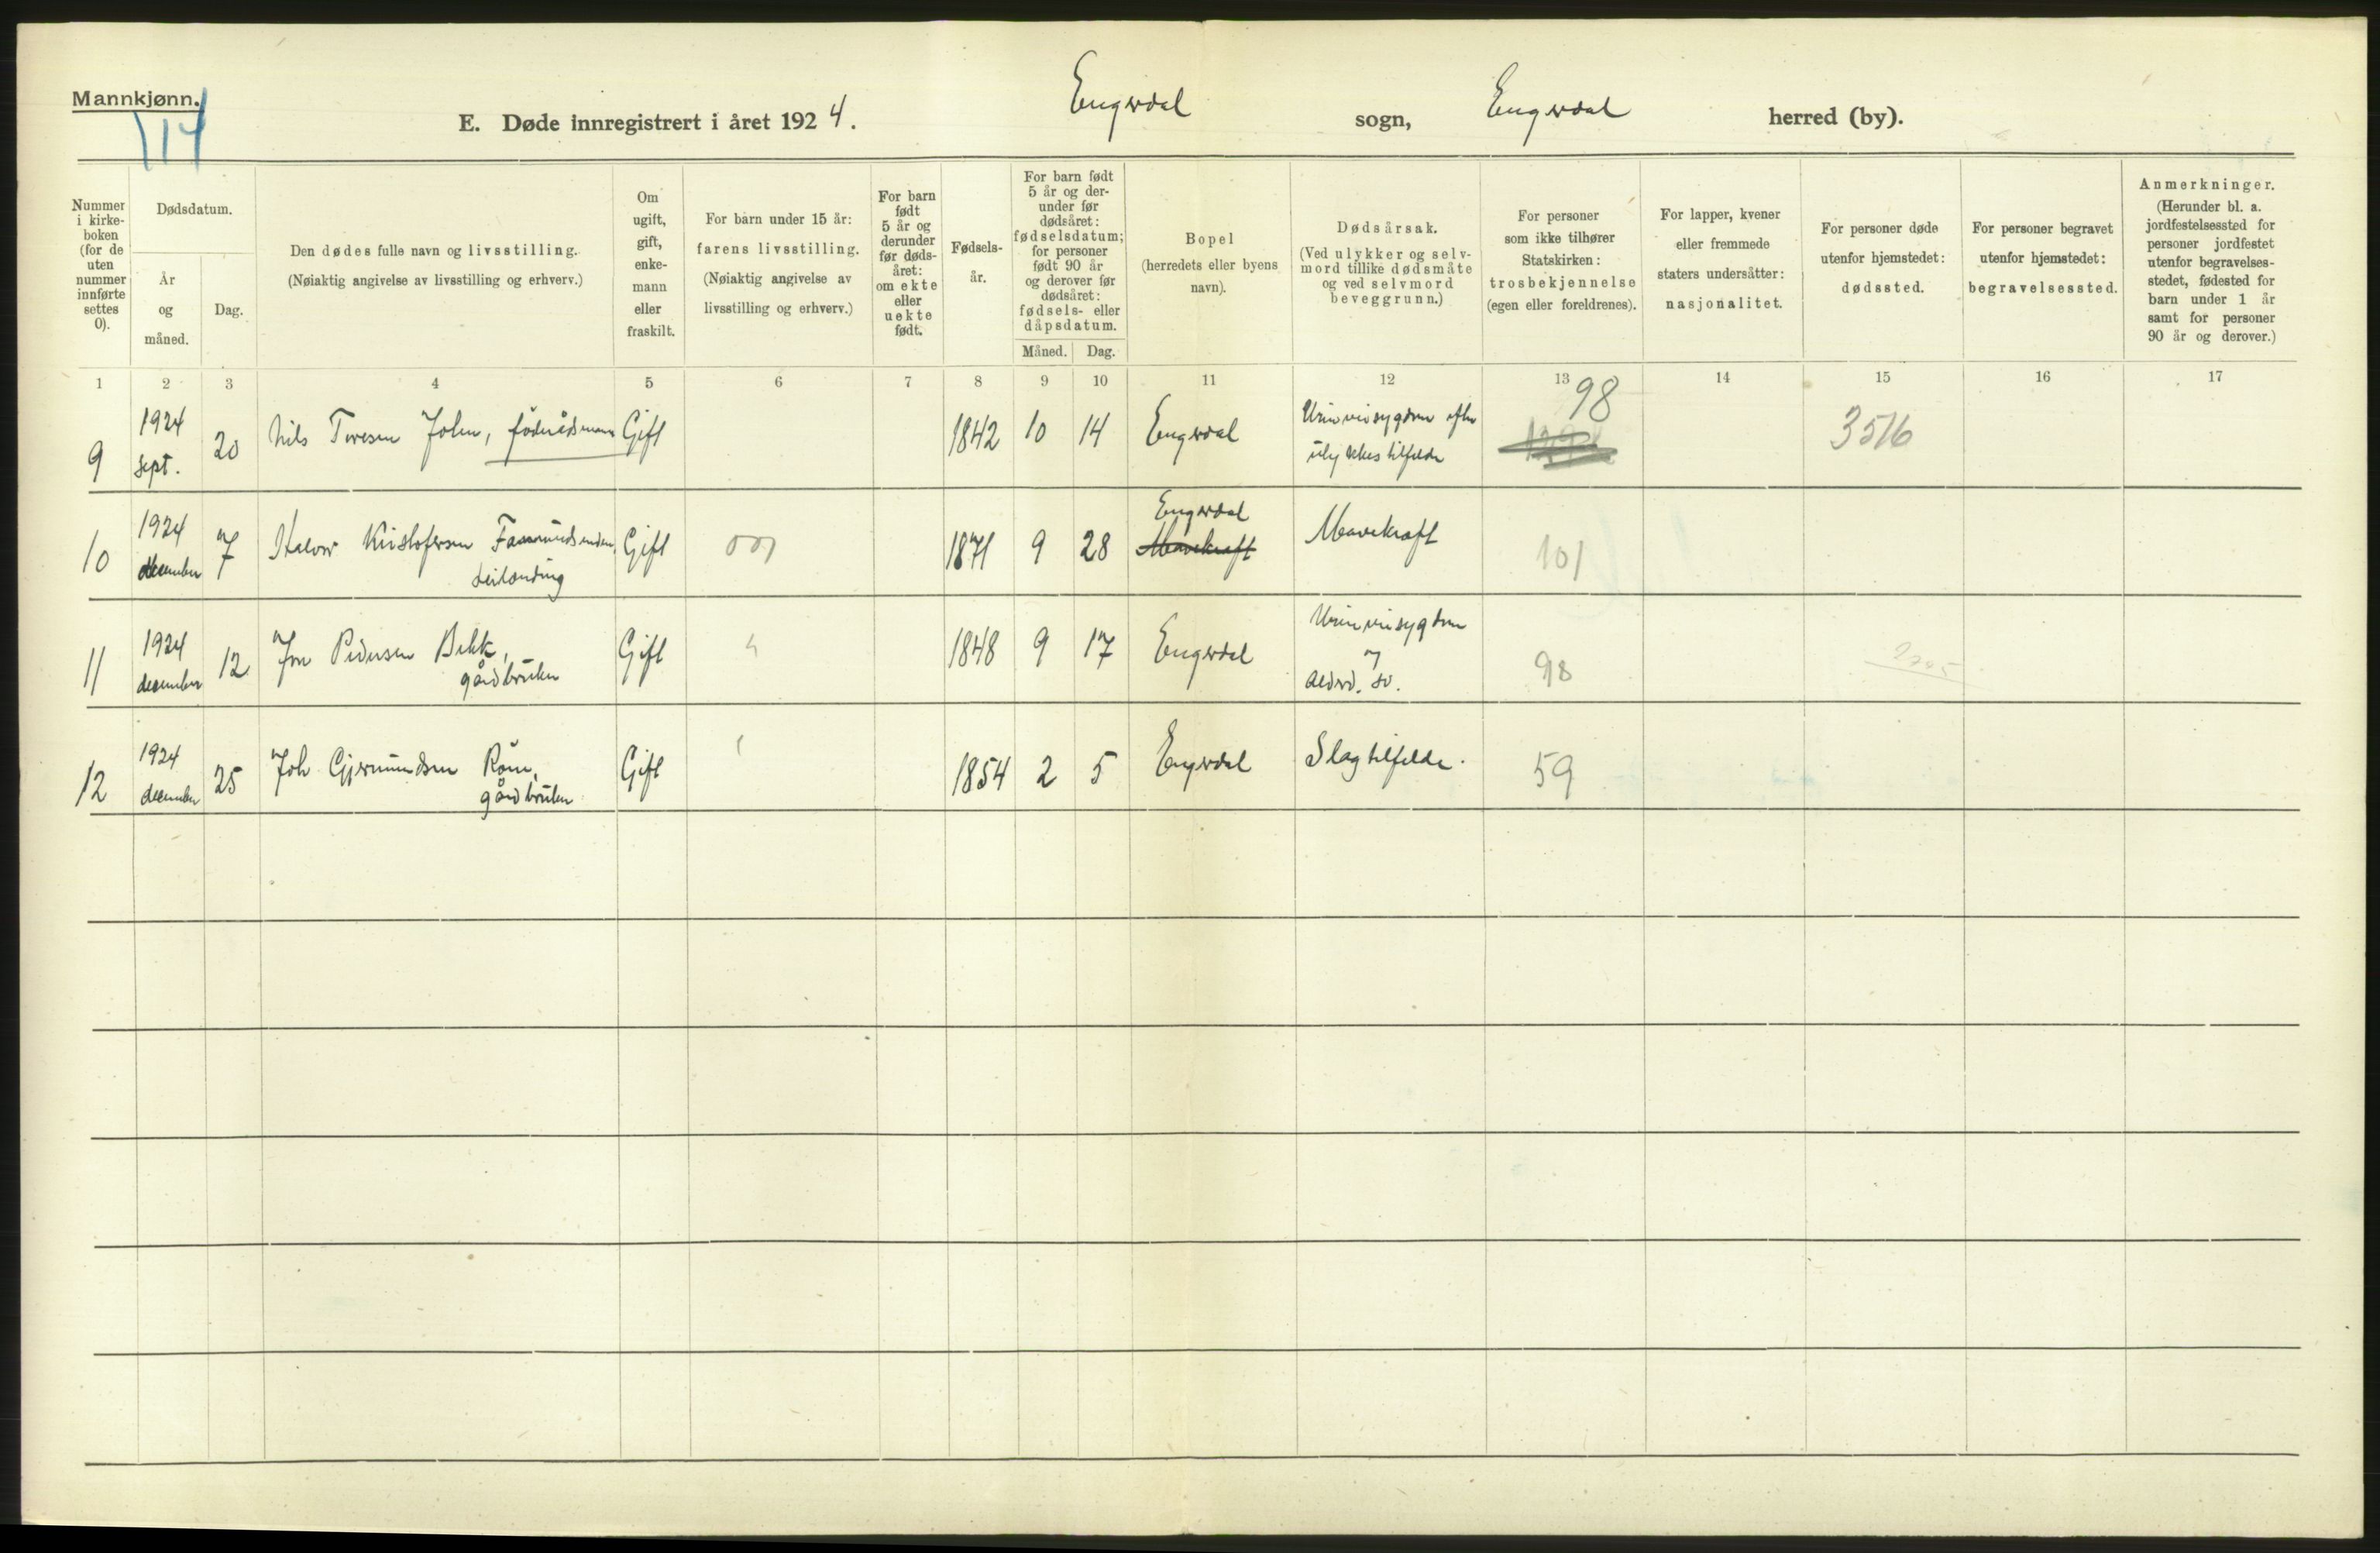 Mannkjønn.
114
E. Døde innregistrert i året 1924. Engerdal sogn, Engerdal herred (by).
Nummer i kirke-
boken
(for de
uten
nummer
innførte
settes
0).
Dødsdatum.
År
og
måned.
Dag.
Den dødes fulle navn og livsstilling.
(Nøiaktig angivelse av livsstilling og erhverv.)
Om
ugift,
gift,
enke-
mann
eller
fraskilt.
For barn under 15 år:
farens livsstilling.
(Nøiaktig angivelse av
livsstilling og erhverv.)
For barn
født
5 år og
derunder
før døds-
året:
om ekte
eller
uekte
født.
Fødsels-
år.
For barn født
5 år og der-
under før
dødsåret:
fødselsdatum;
for personer
født 90 år
og derover før
dødsåret:
fødsels- eller
dåpsdatum.
Måned. Dag.
Bopel
(herredets eller byens
navn).
Dødsårsak.
(Ved ulykker og selv-
mord tillike dødsmåte
og ved selvmord
beveggrunn.)
For personer
som ikke tilhører
Statskirken:
trosbekjennelse
(egen eller foreldrenes).
For lapper, kvener
eller fremmede
staters undersåtter:
nasjonalitet.
For personer døde
utenfor hjemstedet:
dødssted.
For personer begravet
utenfor hjemstedet:
begravelsessted.
Anmerkninger.
(Herunder bl. a.
jordfestelsessted for
personer jordfestet
utenfor begravelses-
stedet, fødested for
barn under 1 år
samt for personer
90 år og derover.)
1 2 3 4 5 6 7 8 9 10 11 12 13 14 15 16 17
9 1924 sept. 20 Nils Toresen John, føderådsmann Gift 1842 10 14 Engerdal Urinveisygdom efter
ulykkestilfelde 98 3516
10 1924 december 7 Halvor Kristofersen Gift 001 1871 9 28 Engerdal Mavekræft 101
Mavekræft
leilending
11 1924 december 12 Jon Pedersen Bekk, Gift 1848 9 17 Engerdal Urinveisygdom
og 98
gårdbruker
12 1924 december 25 Joh Gjermundsen Røm, Gift 1854 2 5 Engerdal Slagtilfelde. 59
gårdbruker